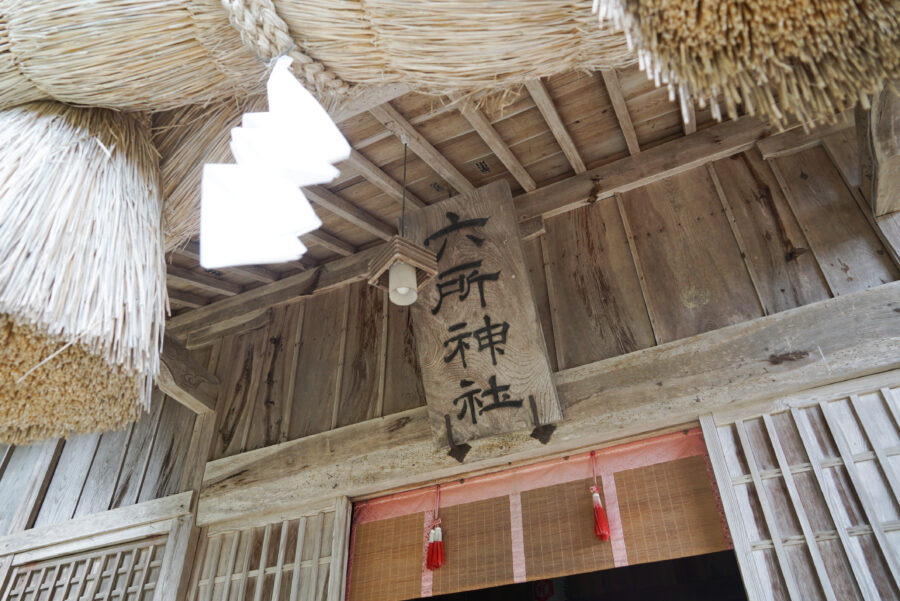 六所神社